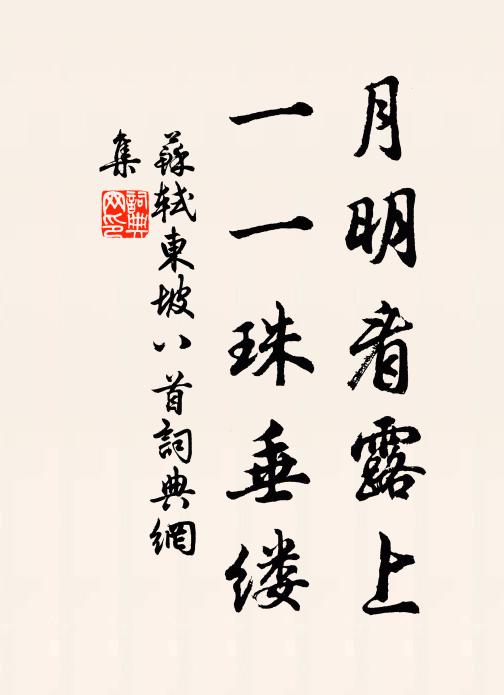 月明看露上
一一珠垂缕
蘇軾東坡八首詞典網
集
詞典
网印